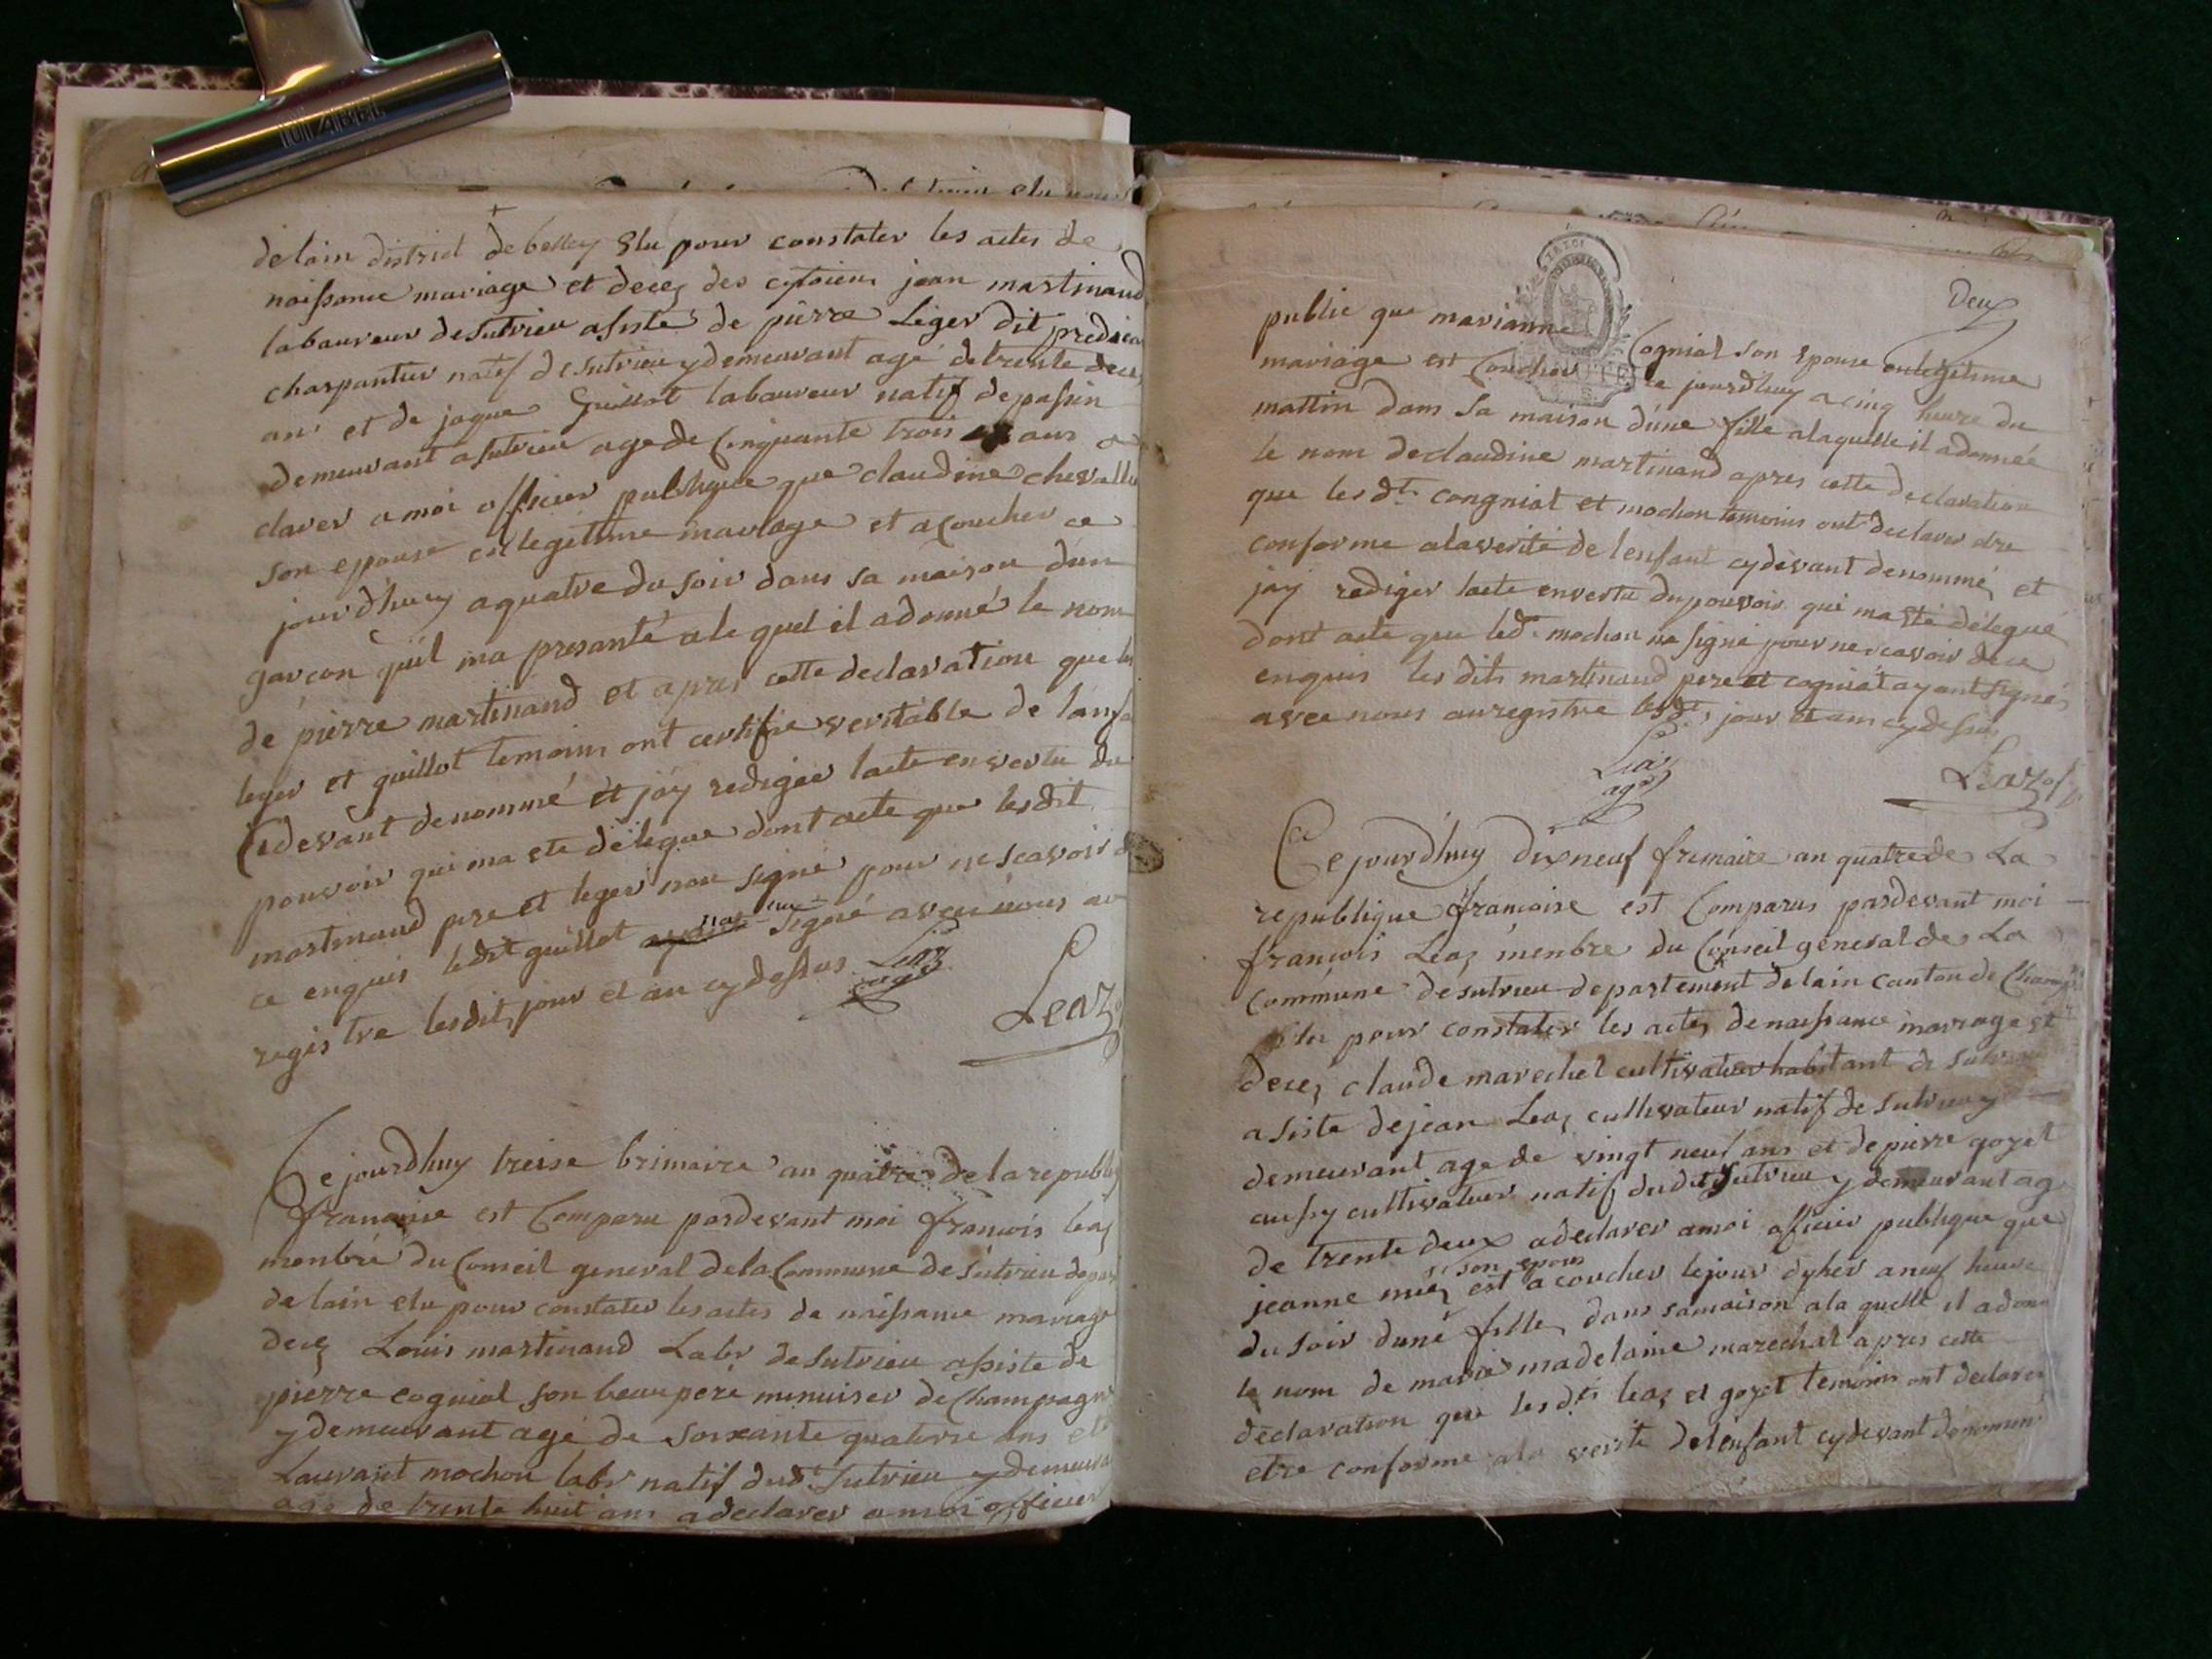 delain district de belley Elu pour constater les actes de
naissance mariage et decez des cytoiens jean martinand
laboureur desutrieu assisté de pierre Leger dit
charpantier natif desutrieu y demeurant agé de trente deux
ans et de jaque Guillot laboureur natif depassin
demeurant asutrieu age de Cinquante trois ans a
clarer a moi officier publique que claudine
son epouse en legetime mariage et acoucher ce
jourdhuy aquatre du soir dans sa maison dun
garcon quil ma presanté ale quel il adonné le nom
de pierre martinand et apres cette declaration que les
leger et guillot temoins ont certifie veritable de
Cidevant denommé et jay rediger lacte envertu du
pouvoir qui ma ete délegue dont acte que lesdit
martinand pere et leger non signé pour ne scavoir de
ce enquis ledit guillot signé avec nous au
registre lesdit jour et an cy dessus
Leaz
Ce jourdhuy treise brimaire an quatre de la republi
francaise est Comparu pardevant moi francois leaz
menbre du Conseil general dela Commune de Sutrieu depar
delain elu pour constater les actes de naissance mariage
decez Louis martinand Labr desutrieu assiste de
pierre cognial son beaupere minuiser de Champagne
y demeurant agé de soixante quatorze ans et
Laurant mochon labr natif dudt Sutrieu y demeura
age de trente huit ans adeclarer a moi officier
Deux
public que marianne Cognial son Epouse enlegetime
mariage est Coucher ce jourdhuy acinq heure du
mattin dans sa maison dune fille alaquelle il adonnée
le nom declaudine martinand apres cette declaration
que les dts congniat et mochon temoins ont declarer etre
conforme alaverité de lenfant cydevant denommé et
jay rediger lacte envertu du pouvoir qui ma eté délegué
dont acte que ledt mochon na signé pour ne scavoir dece
enquis les dits martinand pere et cogniat ayant signés
avec nous auregistre lesdts jour et an cy dessus
Leaz
Ce jourdhuy dixneuf frimaire an quatre de La
republique francaise est Comparus pardevant moi
francois Leaz menbre du Conseil géneral de La
Commune desutrieu departement delain canton de
elu pour constater les actes denaissance mariage et
decez claude marechel cultivateur habitant de
asiste dejean Leaz cultivateur natif de Sutrieu y
demeurant age de vingt neuf ans et de pierre goyet
aussy cultivateur natif dudit Sutrieu y demeurant ag
de trente deux adeclarer amoi officier publique que
son epouse
jeanne est acoucher lejour dyher a neuf heure
du soir duné fille dans samaison ala quelle il adonn
le nom de marie madelaine marechal apres cette
declaration que les dts leaz et goyet temoins ont declarer
etre conforme ala verité delenfant cydevant denommé